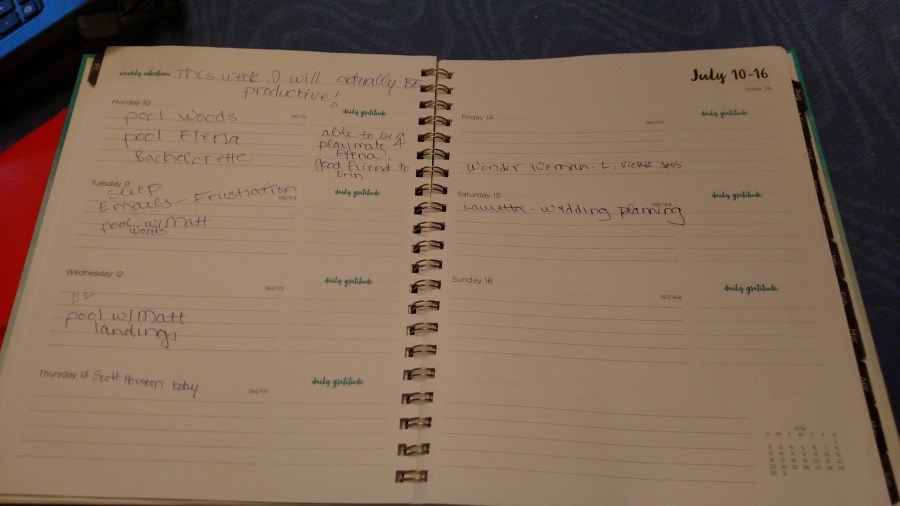 weekly intention This week I will actually BE
productive!
Monday 10
daily gratitude
pool woods
pool Elena
Bachelorette
able to be a
playmate 4
Elena,
good friend to
Erin
Tuesday 11
daily gratitude
sleep
Emails - Frustration
pool w/Matt
woods
Wednesday 12
daily gratitude
TV
pool w/Matt
landings
Thursday 13 Scott Houston baby
daily gratitude
July 10-16
Week 28
Friday 14
daily gratitude
Wonder Woman - L, Vickie, Jess
Saturday 15
daily gratitude
Lauretta - wedding planning
Sunday 16
197/168
daily gratitude
July
S M T W T F S